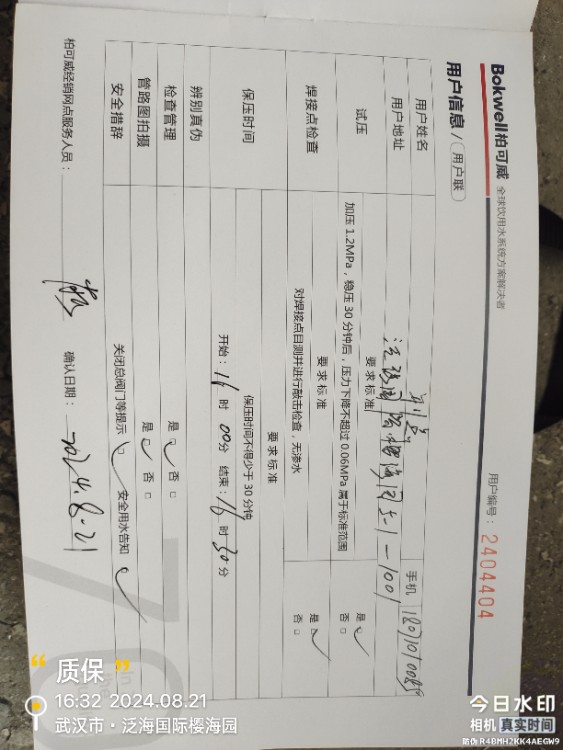 Bokwell柏可威 全球饮用水系统方案解决者
用户编号：2404404
用户信息/（用户联）
用户姓名 手机
用户地址 5-1-1001
试压 要求标准
加压 1.2MPa，稳压 30 分钟后，压力下降不超过 0.06MPa 属于标准范围 是 否
焊接点检查 要求标准
对焊接点目测并进行敲击检查，无渗水 是 否
保压时间 要求标准
保压时间不得少于 30 分钟
开始：16 时 00 分 结束：16 时 30 分
辨别真伪
检查管理 是 否
管路图拍摄 是 否
安全措辞 关闭总阀门等提示 安全用水告知
柏可威经销网点服务人员： 确认日期：2024.8.21
“质保”
16:32 2024.08.21
武汉市·泛海国际樱海园
今日水印
相机 真实时间
防伪 R4BMH2KK4AEGW9